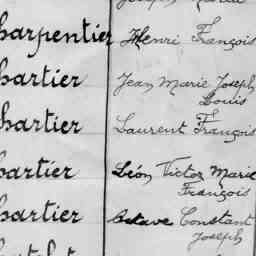 harpentier Henri François
hartier Jean Marie Joseph
Louis
hartier Laurent François
hartier Léon Victor Marie
François
hartier Octave Constant
Joseph